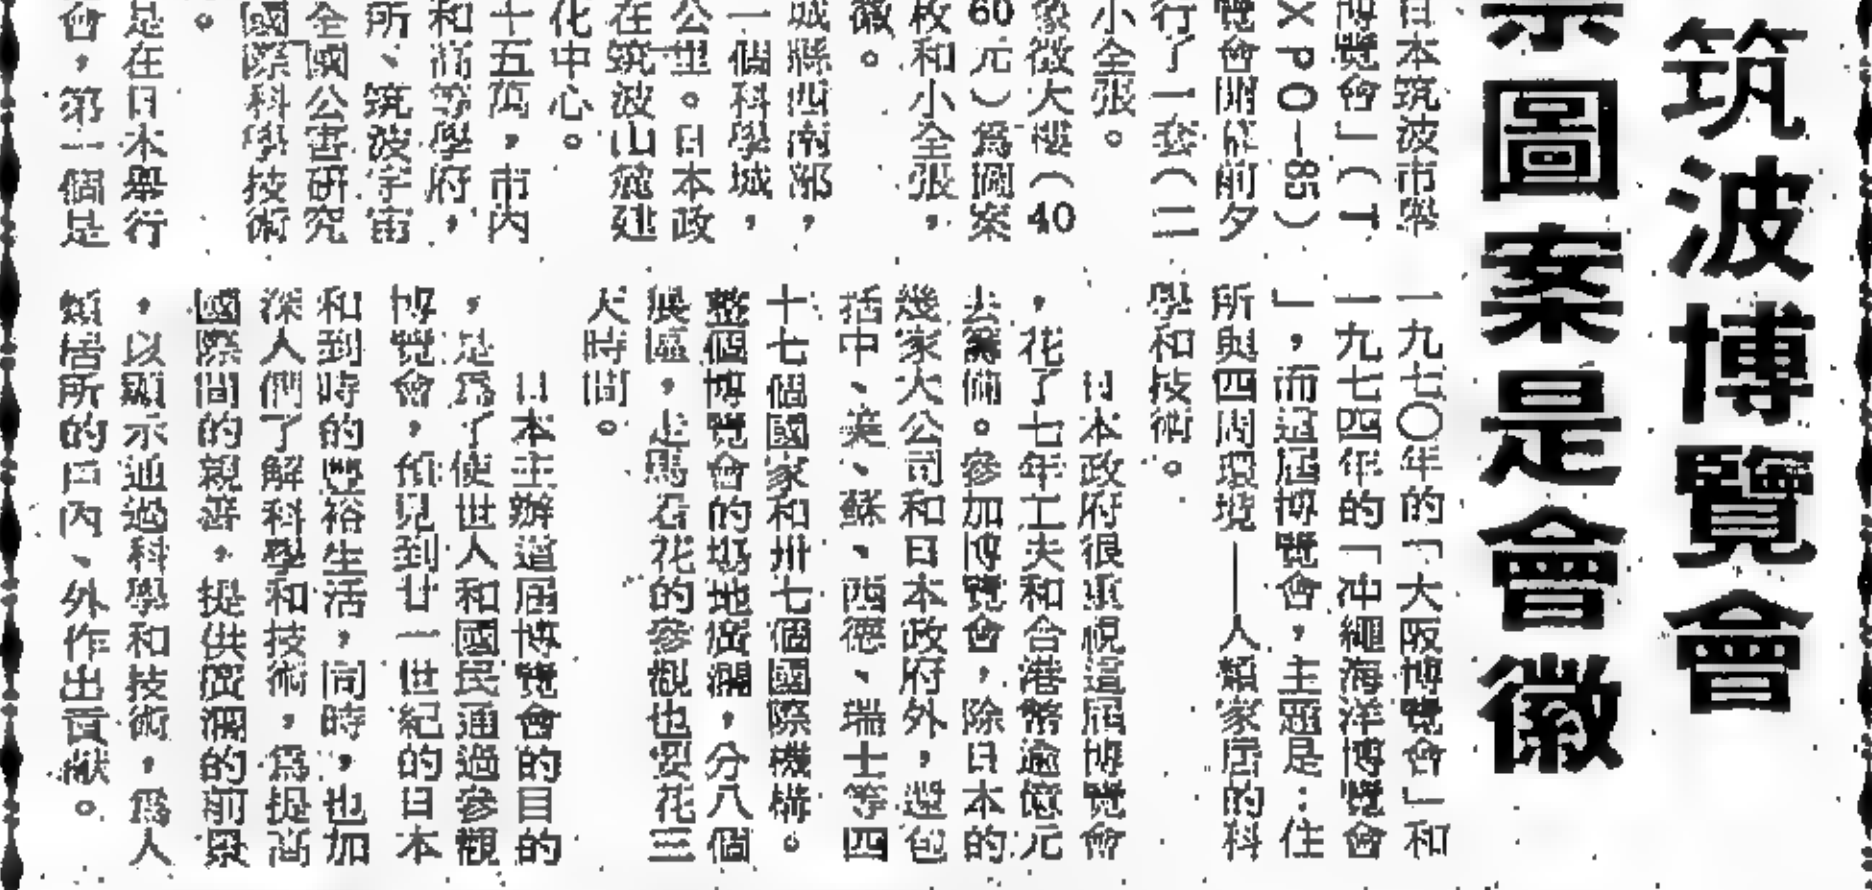 筑波博覽會
票圖案是會徽
日本筑波市舉
博覽會」(T
XPO—85)
覽會開幕前夕
行了一套(二
小全張。
象徵大樓(40
60元)爲圖案
枚和小全張,
徽。
城縣西南部,
一個科學城,
公里。日本政
在筑波山麓建
化中心。
十五萬,市內
和高等學府,
所、筑波宇宙
全國公害研究
國際科學技術
。
是在日本舉行
會,第一個是
一九七〇年的「大阪博覽會」和
一九七四年的「冲繩海洋博覽會
」,而這屆博覽會,主題是:住
所與四周環境——人類家居的科
學和技術。
日本政府很重視這屆博覽會
,花了七年工夫和合港幣逾億元
去籌備。參加博覽會,除日本的
幾家大公司和日本政府外,還包
括中、美、蘇、西德、瑞士等四
十七個國家和卅七個國際機構。
整個博覽會的場地廣濶,分八個
展區,走馬看花的參觀也要花三
天時間。
日本主辦這屆博覽會的目的
,是爲了使世人和國民通過參觀
博覽會,預見到廿一世紀的日本
和到時的豐裕生活,同時,也加
深人們了解科學和技術,爲提高
國際間的親善,提供廣濶的前景
,以顯示通過科學和技術,爲人
類居所的戶內、外作出貢獻。